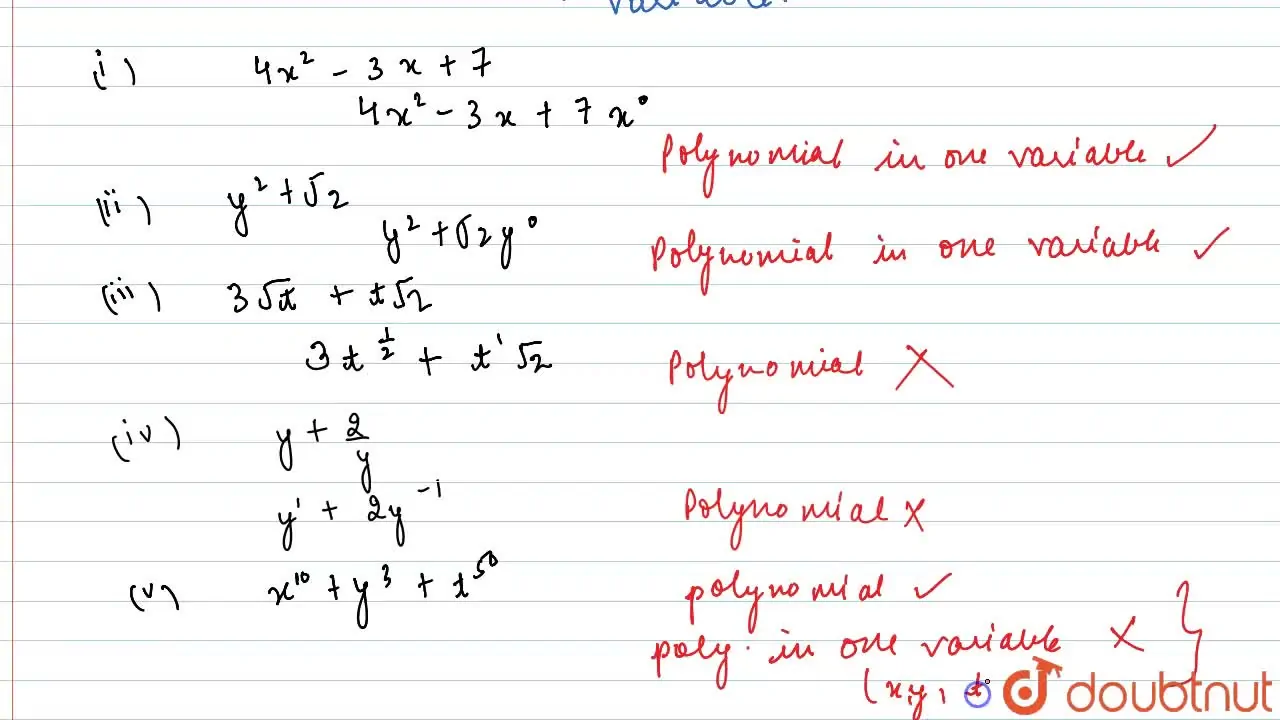 variable.
(i) 4x² - 3x + 7
4x² - 3x + 7x⁰
Polynomial in one variable ✓
(ii) y² + √2
y² + √2y⁰
Polynomial in one variable ✓
(iii) 3√t + t√2
3t^½ + t¹√2
Polynomial ✗
(iv) y + 2/y
y¹ + 2y⁻¹
Polynomial ✗
(v) x¹⁰ + y³ + t⁵⁰
polynomial ✓
poly. in one variable ✗
(x, y, t
doubtnut